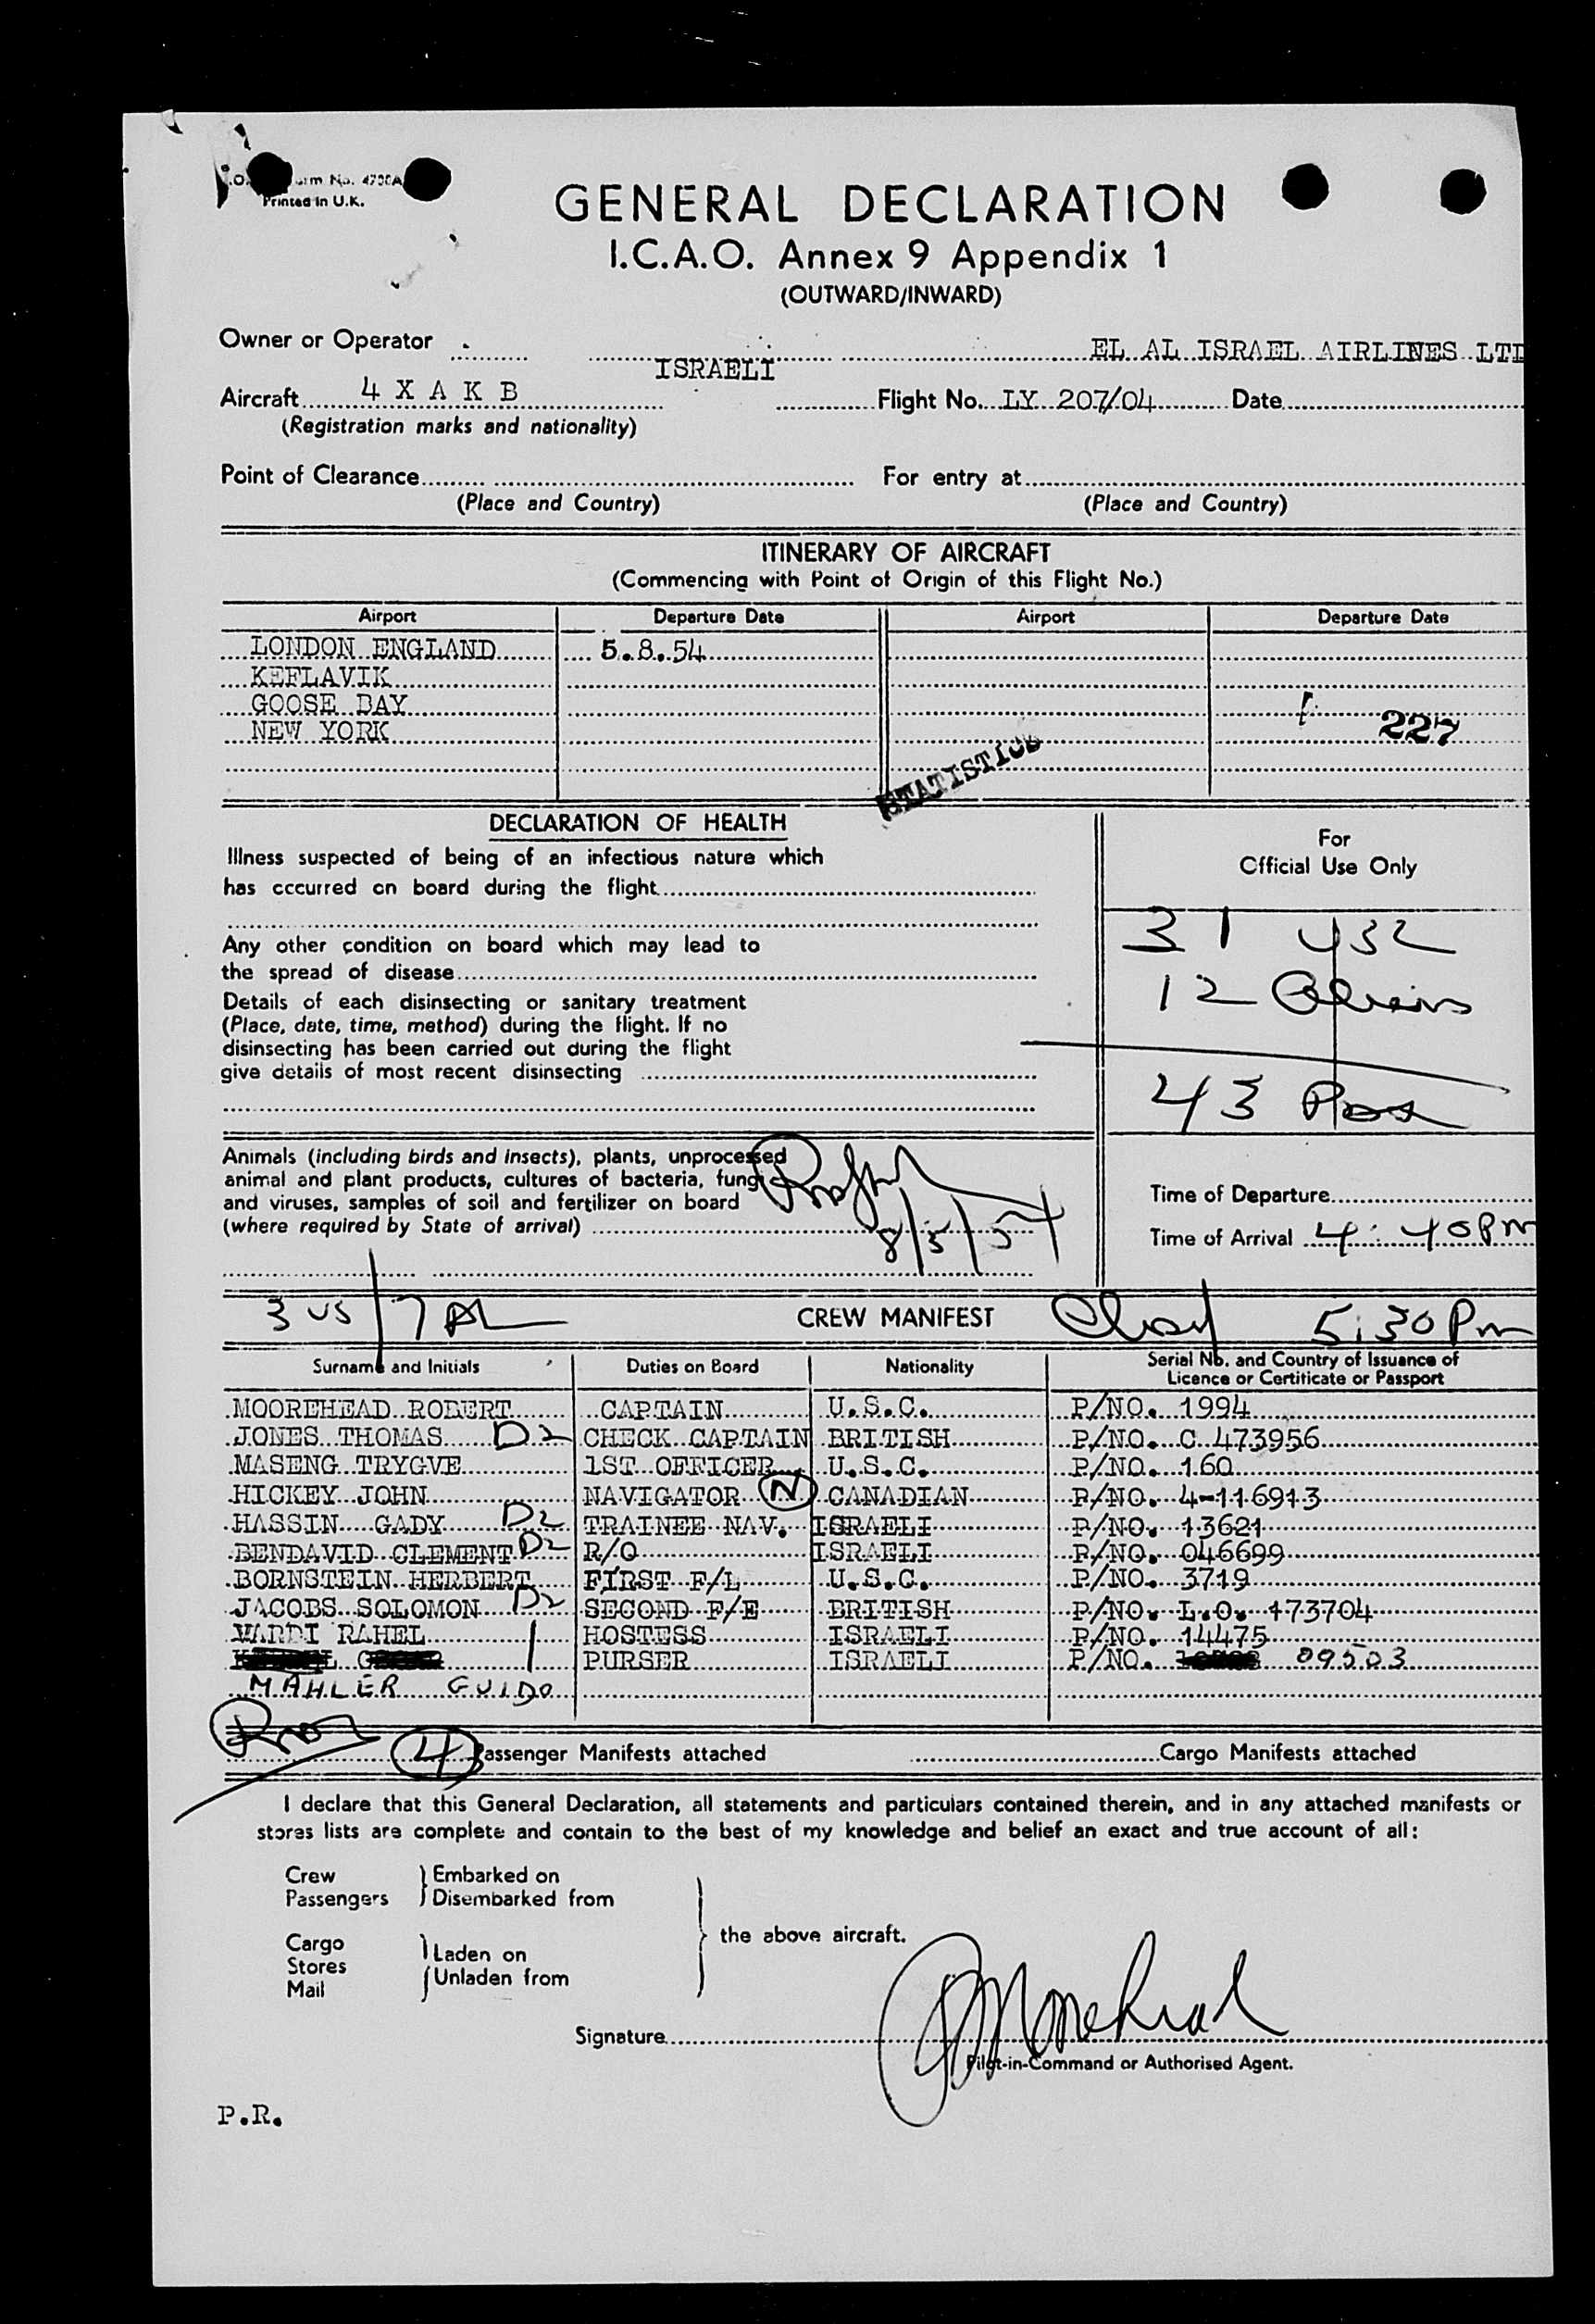 Printed in U.K.
GENERAL DECLARATION
I.C.A.O. Annex 9 Appendix 1
(OUTWARD/INWARD)
Owner or Operator EL AL ISRAEL AIRLINES LTD
ISRAELI
Aircraft 4 X A K B Flight No. LY 207/04 Date
(Registration marks and nationality)
Point of Clearance For entry at
(Place and Country) (Place and Country)
ITINERARY OF AIRCRAFT
(Commencing with Point of Origin of this Flight No.)
Airport Departure Date Airport Departure Date
LONDON ENGLAND 5.8.54
KEFLAVIK
GOOSE BAY
NEW YORK 227
STATISTICS
DECLARATION OF HEALTH
For
Official Use Only
Illness suspected of being of an infectious nature which
has occurred on board during the flight
31
Any other condition on board which may lead to
the spread of disease
12 Aliens
Details of each disinsecting or sanitary treatment
(Place, date, time, method) during the flight. If no
disinsecting has been carried out during the flight
give details of most recent disinsecting
43 Pax
Animals (including birds and insects), plants, unprocessed
animal and plant products, cultures of bacteria, fungi
and viruses, samples of soil and fertilizer on board
(where required by State of arrival)
8/5/54
Time of Departure
Time of Arrival 4:40 Pm
3 US / 7 AL CREW MANIFEST 5:30 Pm
Surname and Initials Duties on Board Nationality Serial No. and Country of Issuance of
Licence or Certificate or Passport
MOOREHEAD ROBERT CAPTAIN U.S.C. P/NO. 1994
JONES THOMAS D2 CHECK CAPTAIN BRITISH P/NO. C 473956
MASENG TRYGVE 1ST OFFICER U.S.C. P/NO. 160
HICKEY JOHN NAVIGATOR N CANADIAN P/NO. 4-116913
HASSIN GADY D2 TRAINEE NAV. ISRAELI P/NO. 13621
BENDAVID CLEMENT D2 R/O ISRAELI P/NO. 046699
BORNSTEIN HERBERT FIRST F/L U.S.C. P/NO. 3719
JACOBS SOLOMON D2 SECOND F/E BRITISH P/NO. L.O. 173704
VARDI RAHEL HOSTESS ISRAELI P/NO. 14475
PURSER ISRAELI P/NO. 09503
MAHLER GUIDO
4 Passenger Manifests attached Cargo Manifests attached
I declare that this General Declaration, all statements and particulars contained therein, and in any attached manifests or
stores lists are complete and contain to the best of my knowledge and belief an exact and true account of all:
Crew Embarked on
Passengers Disembarked from
the above aircraft.
Cargo
Stores Laden on
Mail Unladen from
Signature
Pilot-in-Command or Authorised Agent.
P.R.